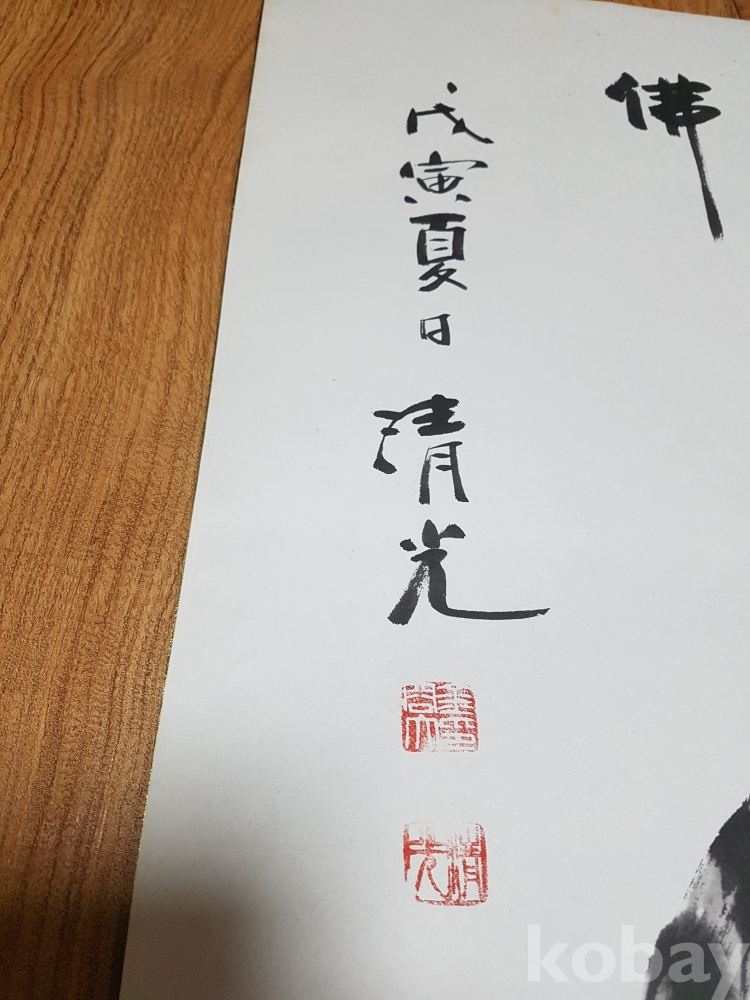 佛
戊寅夏日
清光
清光
kobay